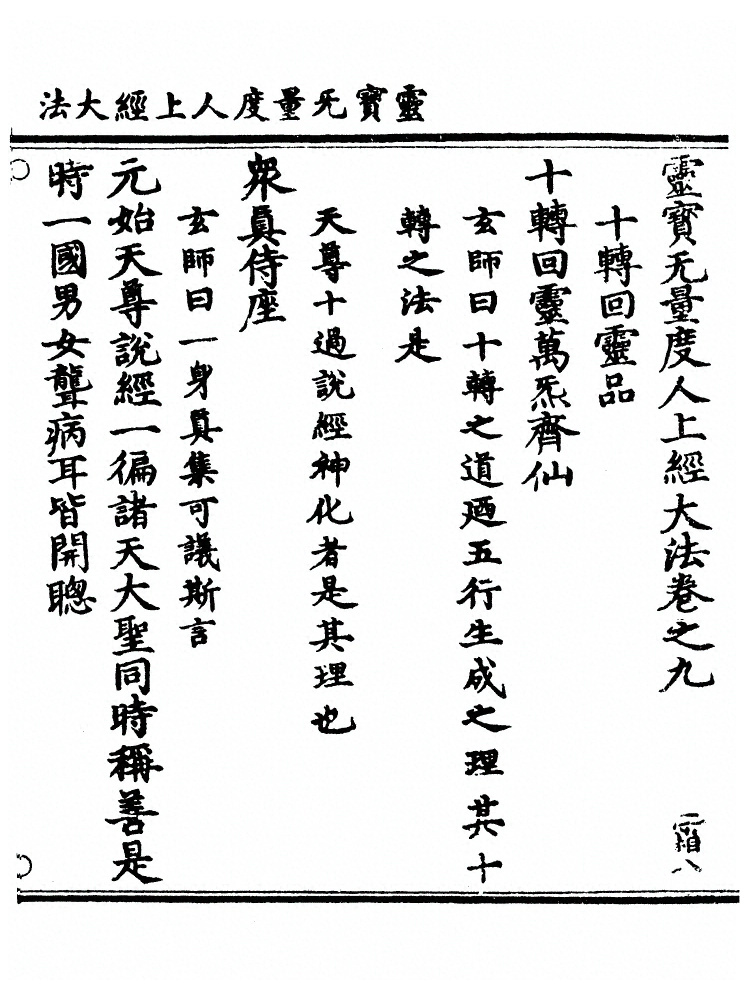 靈寶无量度人上經大法
靈寶无量度人上經大法卷之九
十轉回靈品
十轉回靈萬炁齊仙
玄師曰十轉之道廼五行生成之理其十
轉之法是
天尊十過說經神化者是其理也
衆眞侍座
玄師曰一身眞集可議斯言
元始天尊說經一徧諸天大聖同時稱善是
時一國男女聾病耳皆開聰